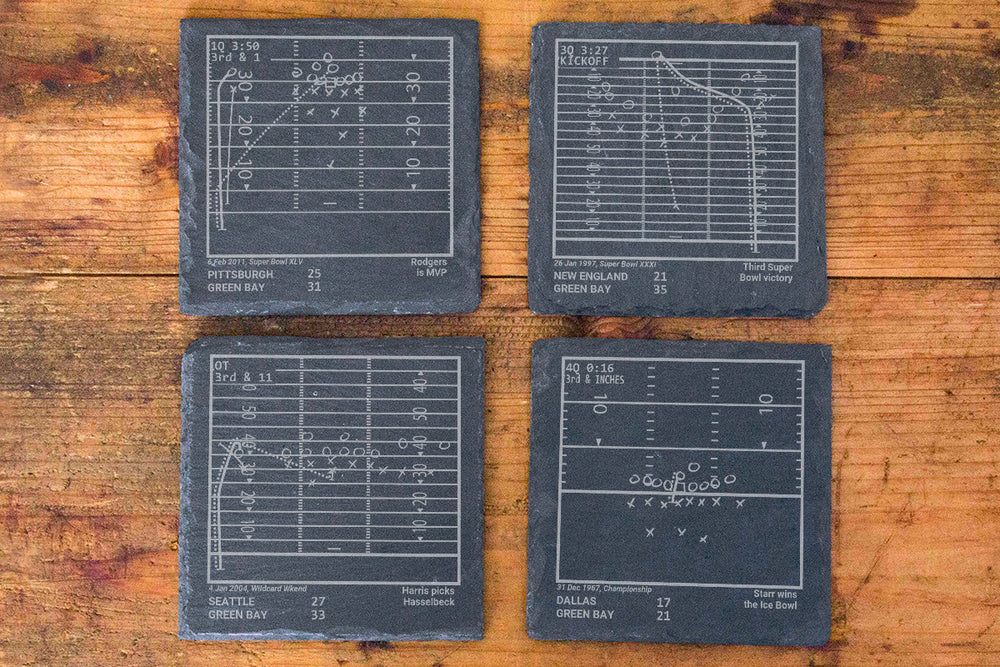 1Q 3:50
3rd & 1
30
30
20
20
10
10
6 Feb 2011, Super Bowl XLV
Rodgers
is MVP
PITTSBURGH 25
GREEN BAY 31
3Q 3:27
KICKOFF
26 Jan 1997, Super Bowl XXXI
Third Super
Bowl victory
NEW ENGLAND 21
GREEN BAY 35
OT
3rd & 11
40
50
50
40
40
30
30
20
20
10
10
4 Jan 2004, Wildcard Wkend
Harris picks
Hasselbeck
SEATTLE 27
GREEN BAY 33
4Q 0:16
3rd & INCHES
10
10
31 Dec 1967, Championship
Starr wins
the Ice Bowl
DALLAS 17
GREEN BAY 21